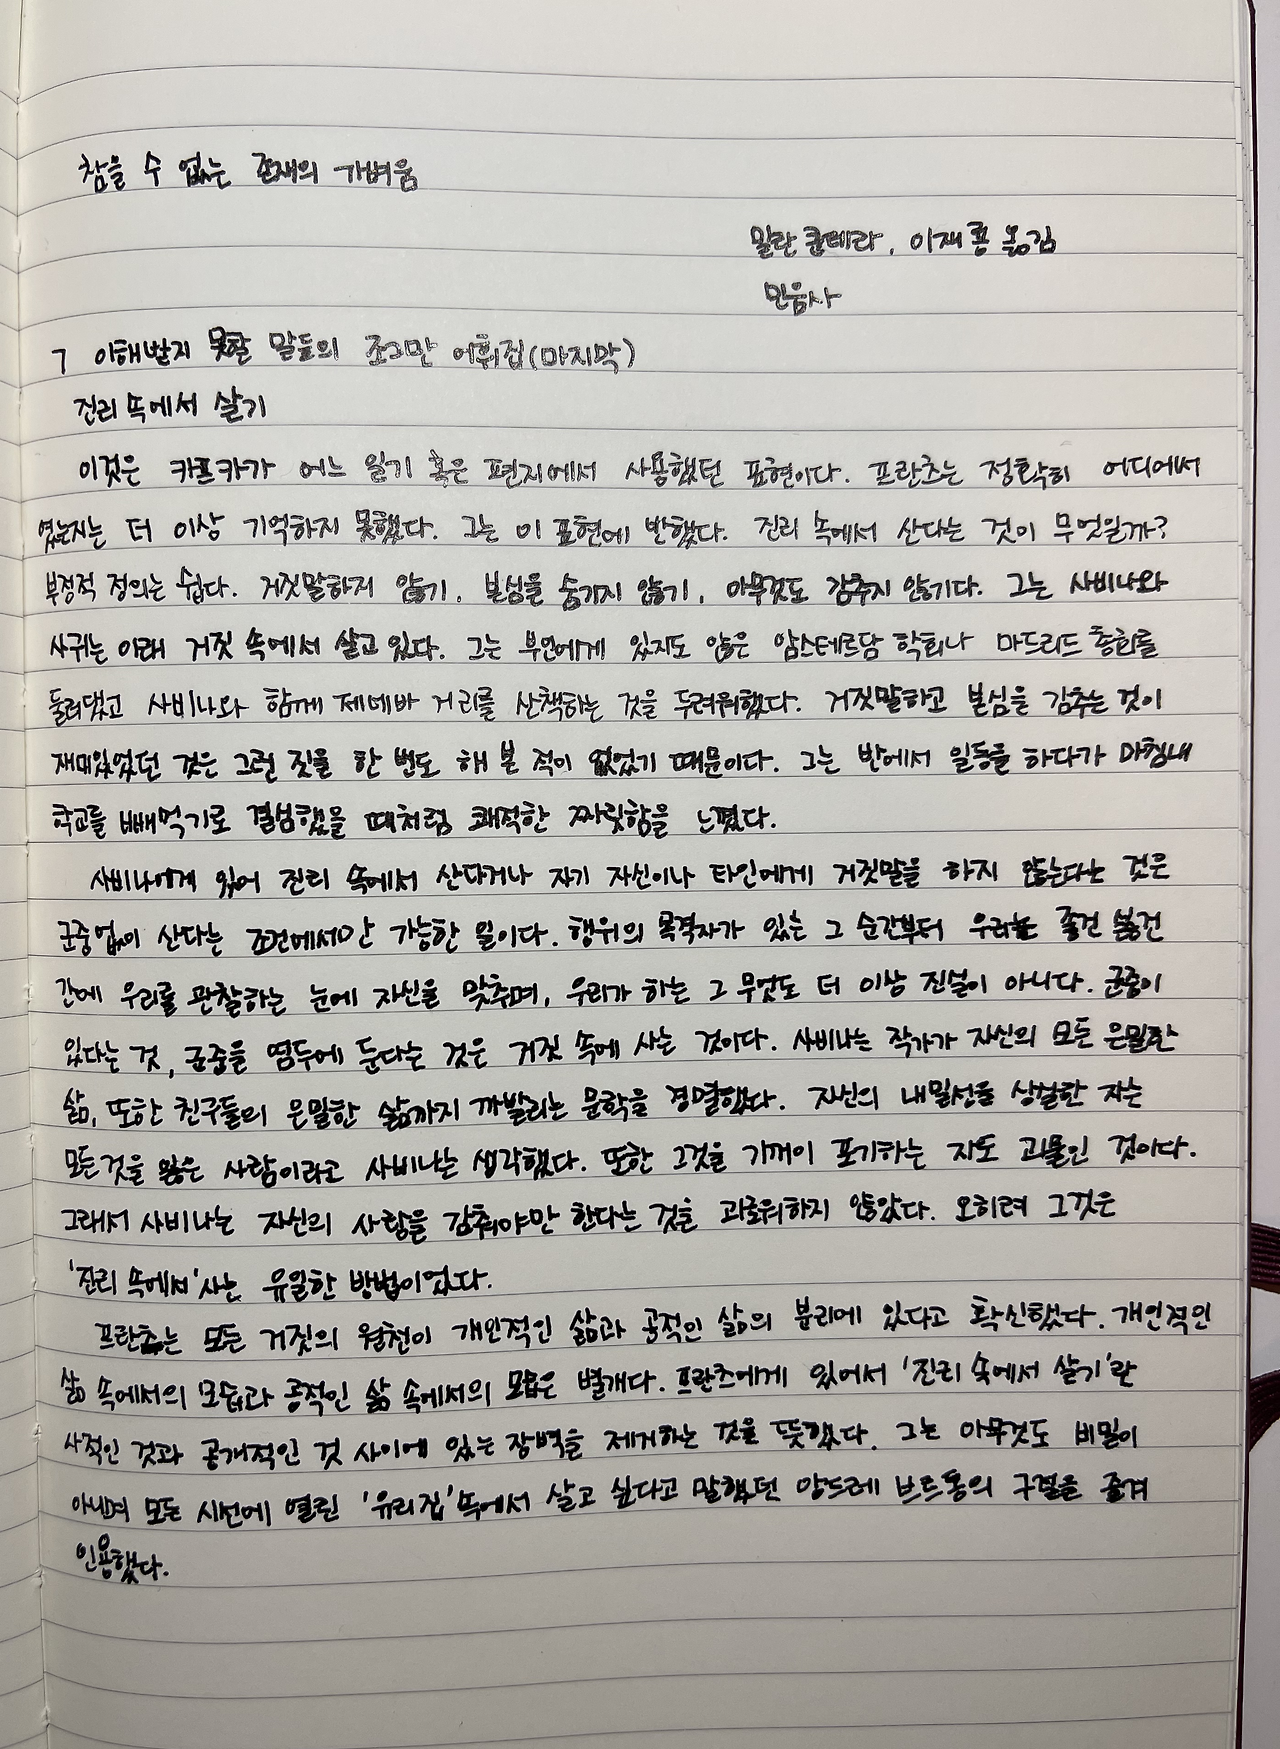 참을 수 없는 존재의 가벼움
밀란 쿤데라, 이재룡 옮김
민음사
7 이해받지 못할 말들의 조그만 어휘집(마지막)
진리 속에서 살기
이것은 카프카가 어느 일기 혹은 편지에서 사용했던 표현이다. 프란츠는 정확히 어디에서
였는지는 더 이상 기억하지 못했다. 그는 이 표현에 반했다. 진리 속에서 산다는 것이 무엇일까?
부정적 정의는 쉽다. 거짓말하지 않기, 본심을 숨기지 않기, 아무것도 감추지 않기다. 그는 사비나와
사귀는 이래 거짓 속에서 살고 있다. 그는 부인에게 있지도 않은 암스테르담 학회나 마드리드 총회를
둘러댔고 사비나와 함께 제네바 거리를 산책하는 것을 두려워했다. 거짓말하고 본심을 감추는 것이
재미있었던 것은 그런 짓을 한 번도 해 본 적이 없었기 때문이다. 그는 반에서 일등을 하다가 마침내
학교를 빼먹기로 결심했을 때처럼 쾌적한 짜릿함을 느꼈다.
사비나에게 있어 진리 속에서 산다거나 자기 자신이나 타인에게 거짓말을 하지 않는다는 것은
군중 없이 산다는 조건에서만 가능한 일이다. 행위의 목격자가 있는 그 순간부터 우리는 좋건 싫건
간에 우리를 관찰하는 눈에 자신을 맞추며, 우리가 하는 그 무엇도 더 이상 진실이 아니다. 군중이
있다는 것, 군중을 염두에 둔다는 것은 거짓 속에 사는 것이다. 사비나는 작가가 자신의 모든 은밀한
삶, 또한 친구들의 은밀한 삶까지 까발리는 문학을 경멸했다. 자신의 내밀성을 상실한 자는
모든 것을 잃은 사람이라고 사비나는 생각했다. 또한 그것을 기꺼이 포기하는 자도 괴물인 것이다.
그래서 사비나는 자신의 사랑을 감춰야만 한다는 것을 괴로워하지 않았다. 오히려 그것은
'진리 속에서' 사는 유일한 방법이었다.
프란츠는 모든 거짓의 원천이 개인적인 삶과 공적인 삶의 분리에 있다고 확신했다. 개인적인
삶 속에서의 모습과 공적인 삶 속에서의 모습은 별개다. 프란츠에게 있어서 '진리 속에서 살기'란
사적인 것과 공개적인 것 사이에 있는 장벽을 제거하는 것을 뜻했다. 그는 아무것도 비밀이
아니며 모든 시선에 열린 '유리 집' 속에서 살고 싶다고 말했던 앙드레 브르통의 구절을 즐겨
인용했다.